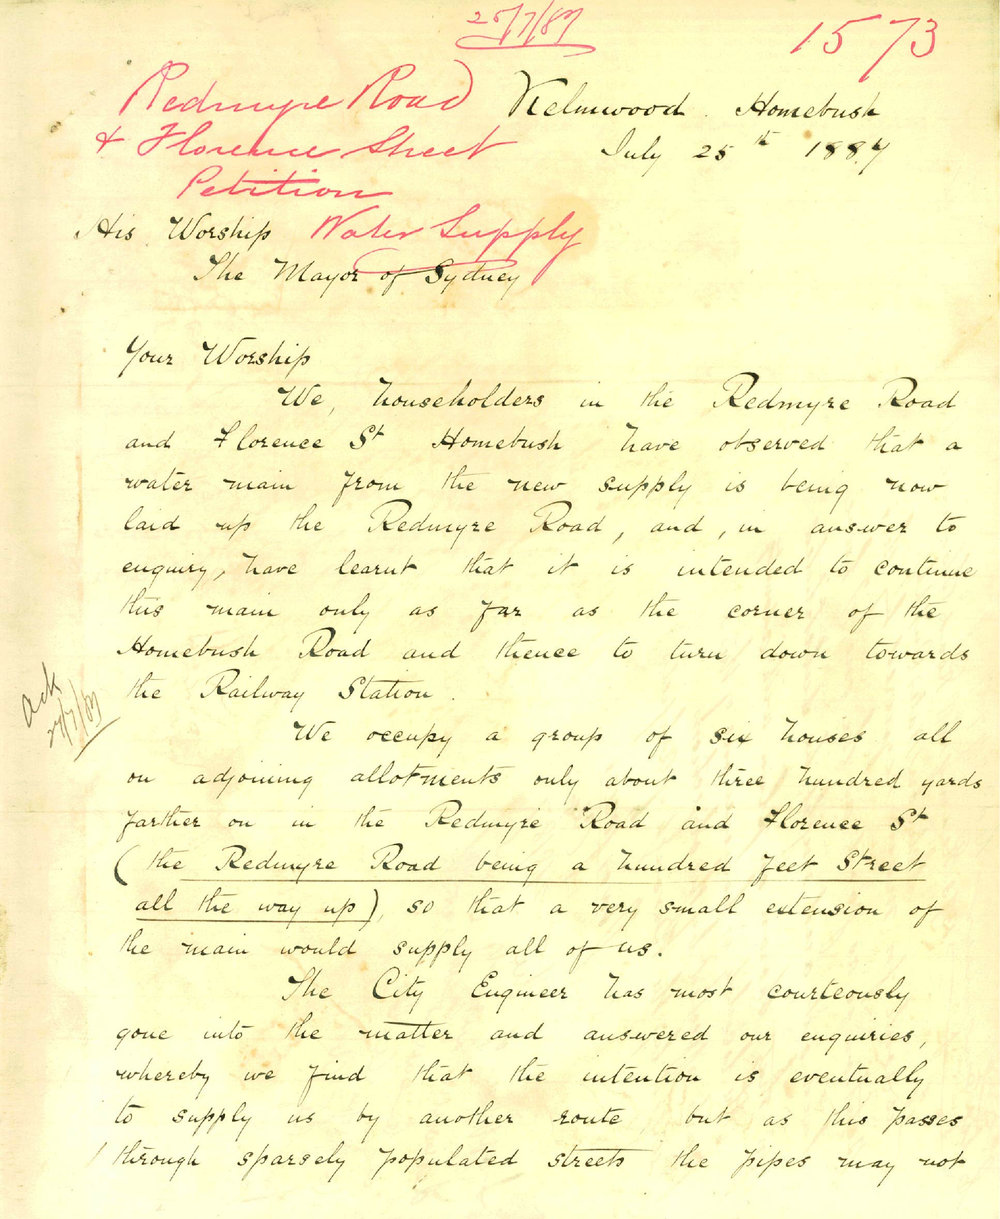 25/7/87
1573
Redmyre Road
& Florence Street
Petition
Water Supply
Kelmwood. Homebush
July 25th 1887
His Worship
The Mayor of Sydney
Your Worship
We, householders in the Redmyre Road
and Florence St Homebush have observed that a
water main from the new supply is being now
laid up the Redmyre Road, and, in answer to
enquiry, have learnt that it is intended to continue
this main only as far as the corner of the
Homebush Road and thence to turn down towards
the Railway Station.
Ack
27/7/87
We occupy a group of six houses all
on adjoining allotments only about three hundred yards
farther on in the Redmyre Road and Florence St
(the Redmyre Road being a hundred feet Street
all the way up), so that a very small extension of
the main would supply all of us.
The City Engineer has most courteously
gone into the matter and answered our enquiries,
whereby we find that the intention is eventually
to supply us by another route but as this passes
through sparsely populated streets the pipes may not